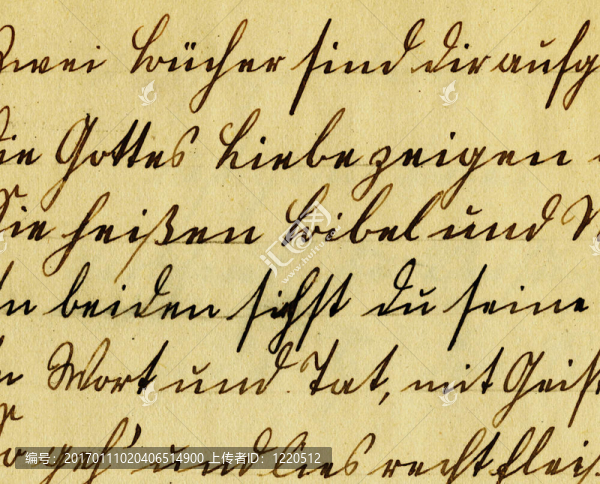 Zwei Bücher sind dir aufg
die Gottes Liebe zeigen
Sie heißen Bibel und N
In beiden sihst du seine
in Wort und Tat, mit Geist
So geh' und lies recht fleiß
编号：20170111020406514900 上传者ID：1220512